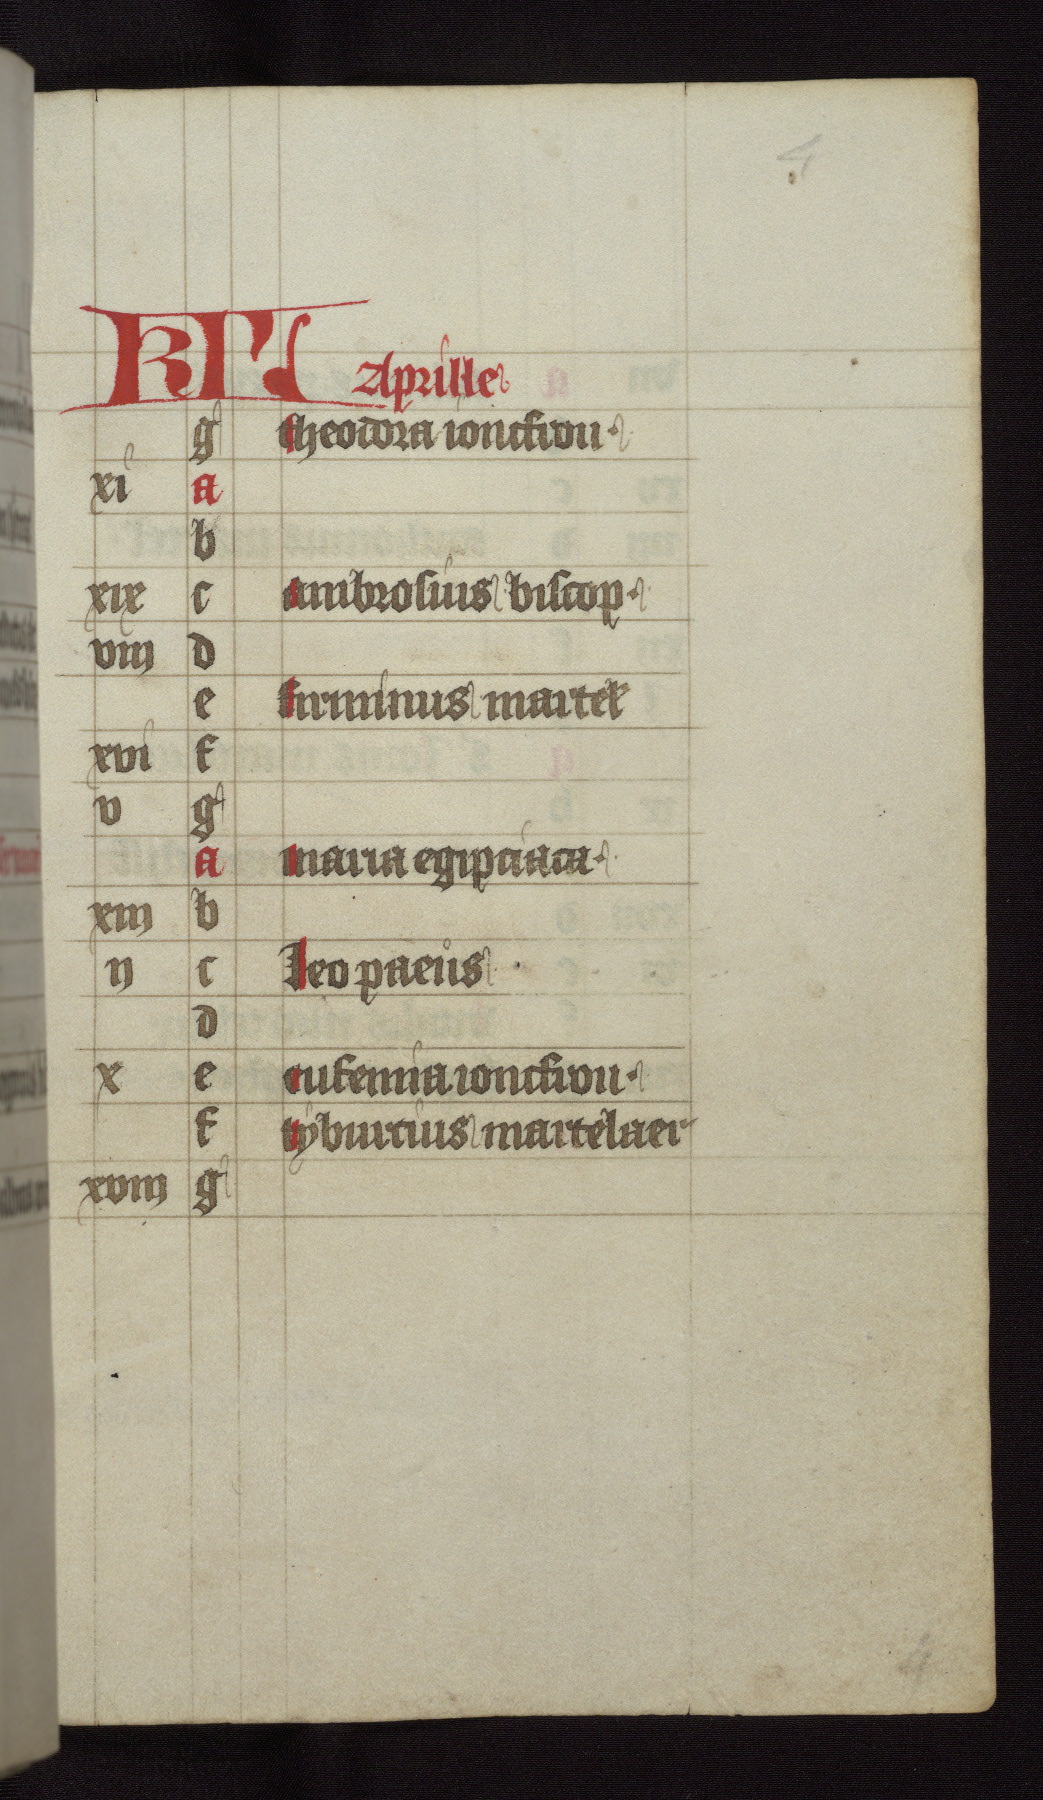 4
KL Aprille
g theodora ioncfrou
xi a
b
xix c ambrosius biscop
viij d
e firminus martel
xvi f
v g
a maria egipciaca
xiij b
ij c Leo paeus
d
x e eufemia ioncfrou
f tyburcius martelaer
xviij g
4